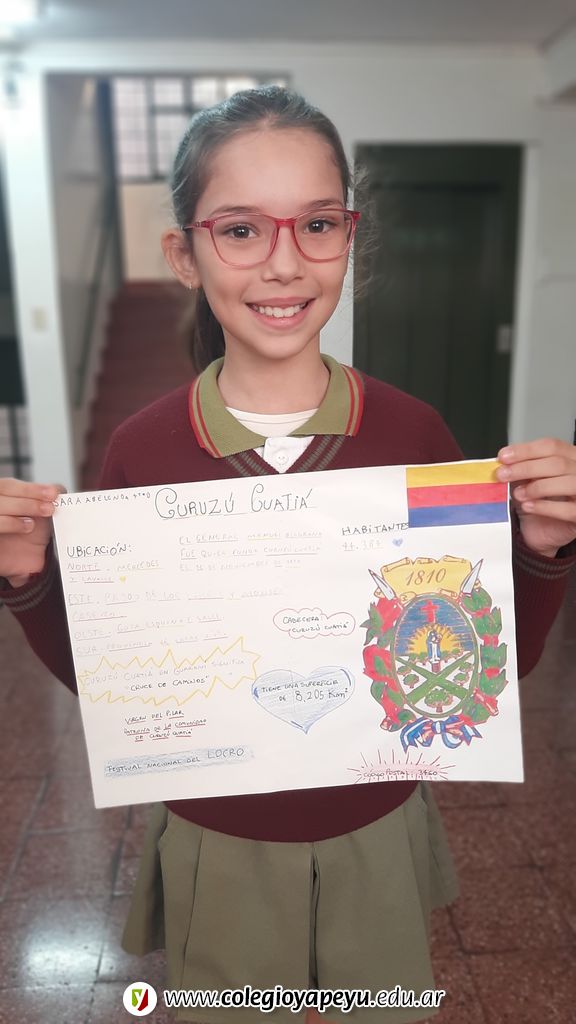 SARA ABELENDA 4TO D
CURUZÚ CUATIÁ
UBICACIÓN:
NORTE. MERCEDES
Y LAVALLE
EL GENERAL MANUEL BELGRANO
FUE QUIEN FUNDÓ CURUZÚ CUATIÁ
EL 16 DE NOVIEMBRE DE 1810
HABITANTES
44.384
ESTE. PASO DE LOS LIBRES Y MONTE
CASEROS
OESTE. GOYA ESQUINA Y SAUCE
SUR.
CABECERA
CURUZÚ CUATIÁ
CURUZÚ CUATIÁ EN GUARANÍ SIGNIFICA
"CRUCE DE CAMINOS"
TIENE UNA SUPERFICIE
DE 8.205 Km²
VIRGEN DEL PILAR
PATRONA DE LA COMUNIDAD
DE CURUZÚ CUATIÁ
FESTIVAL NACIONAL DEL LOCRO
1810
CÓDIGO POSTAL: 3460
www.colegioyapeyu.edu.ar